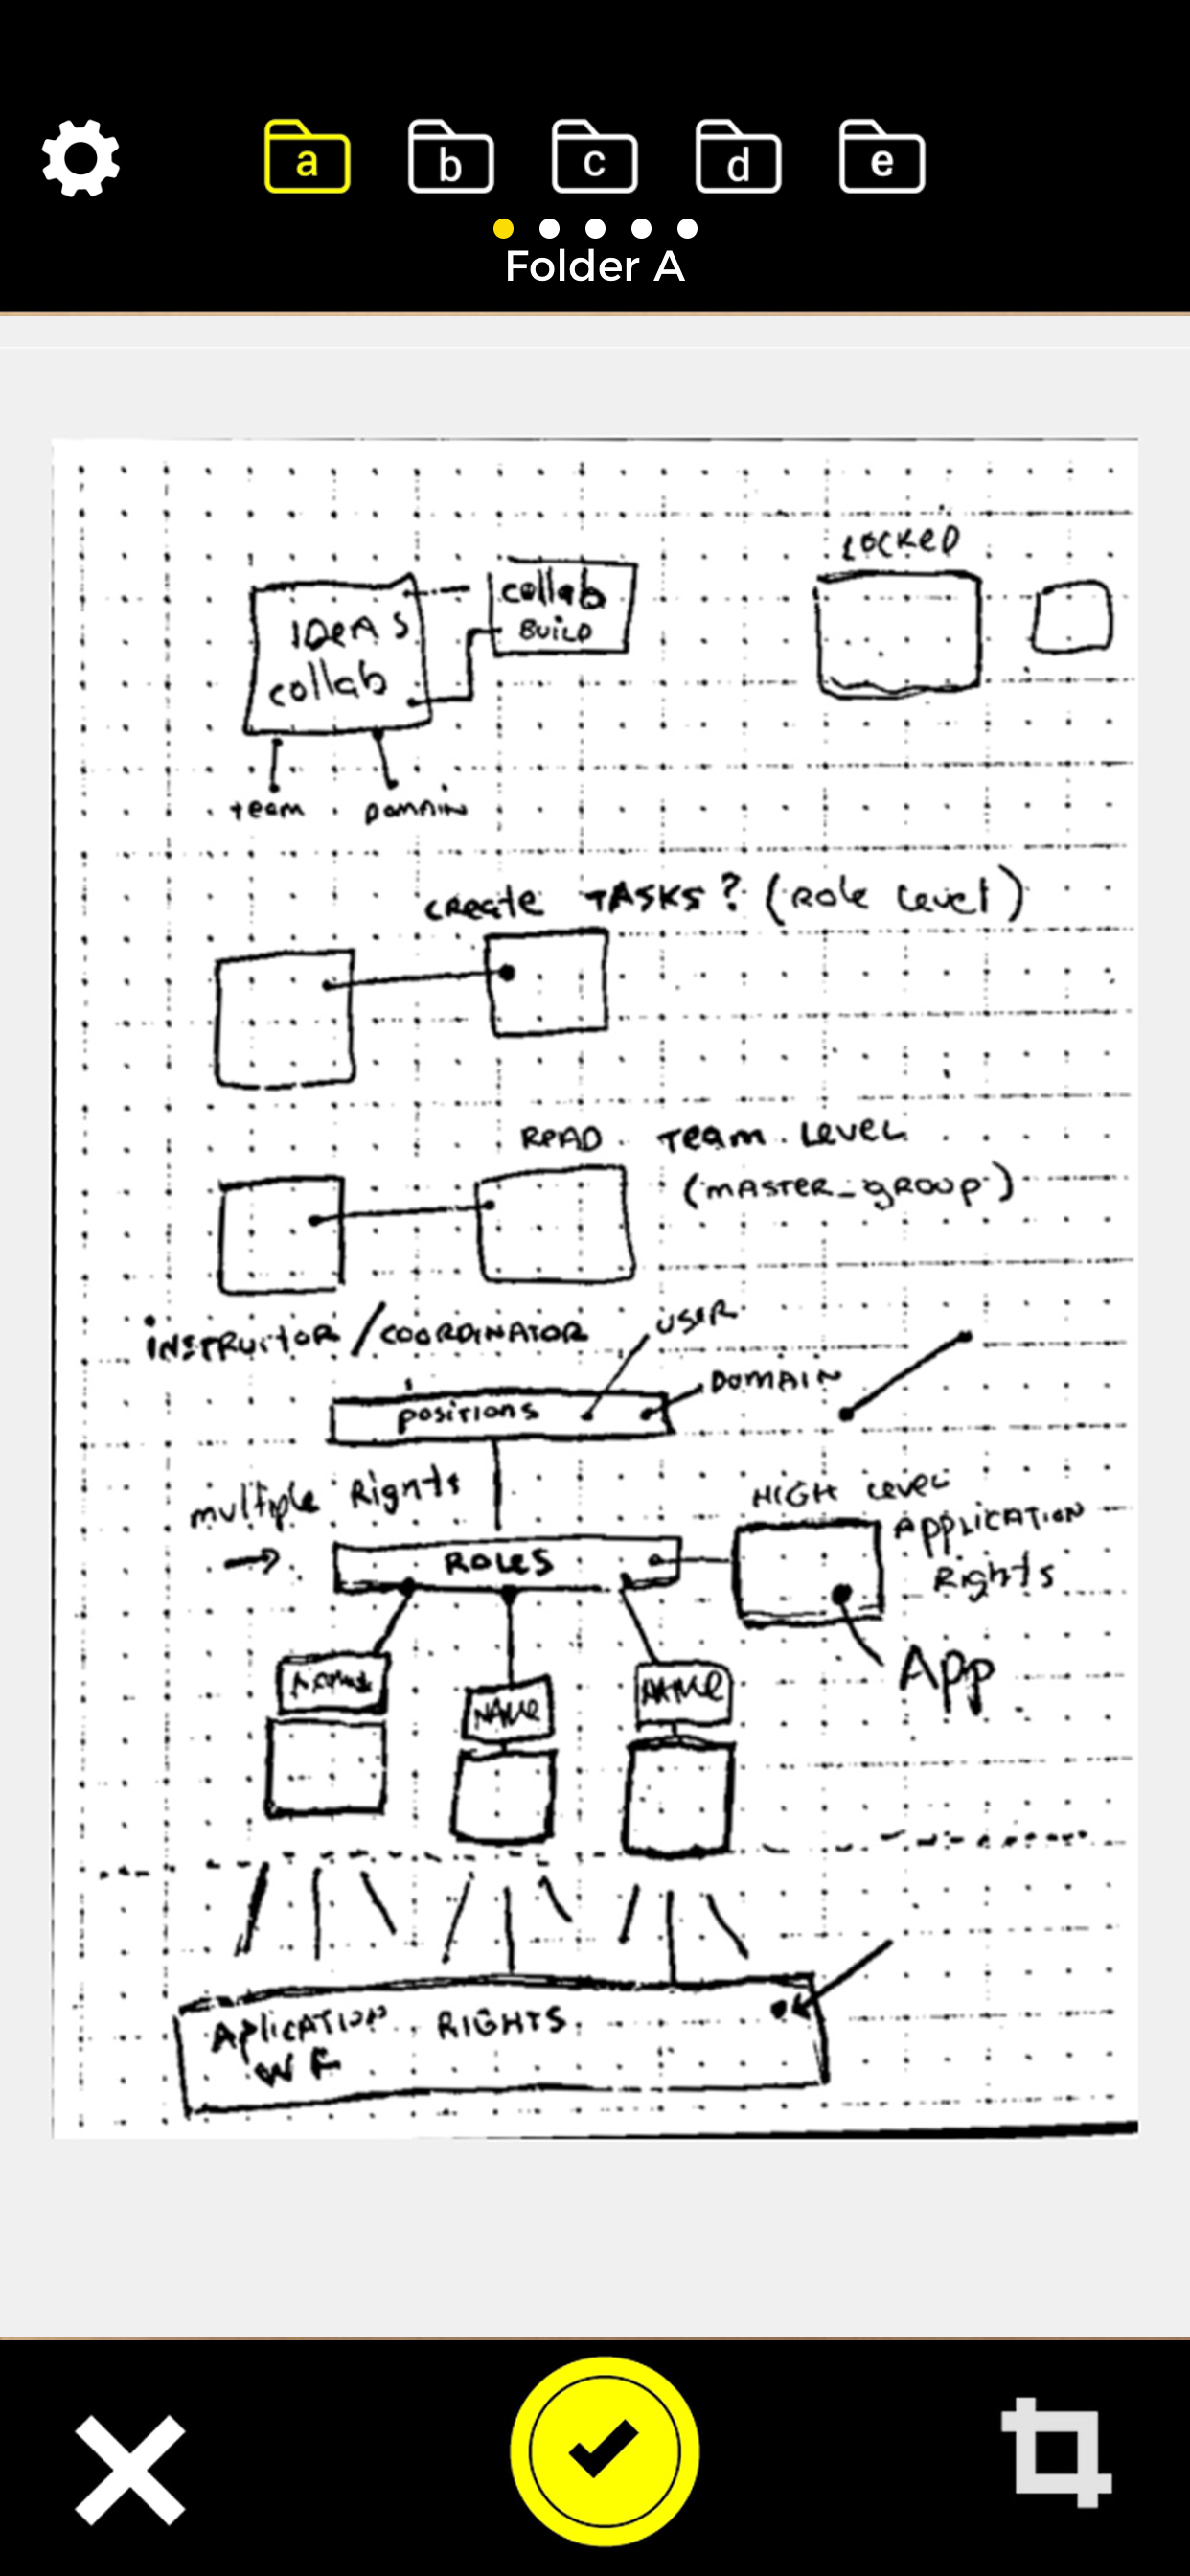 a b c d e
Folder A
LOCKED
IDEAS
collab
collab
BUILD
team DOMAIN
CREATE TASKS? (Role Level)
READ TEAM LEVEL
(MASTER_GROUP)
INSTRUITOR / COORDINATOR
USER
DOMAIN
POSITIONS
multiple Rights
HIGH LEVEL
APPLICATION
Rights
ROLES
App
NAME
NAME
APLICATION RIGHTS
WF